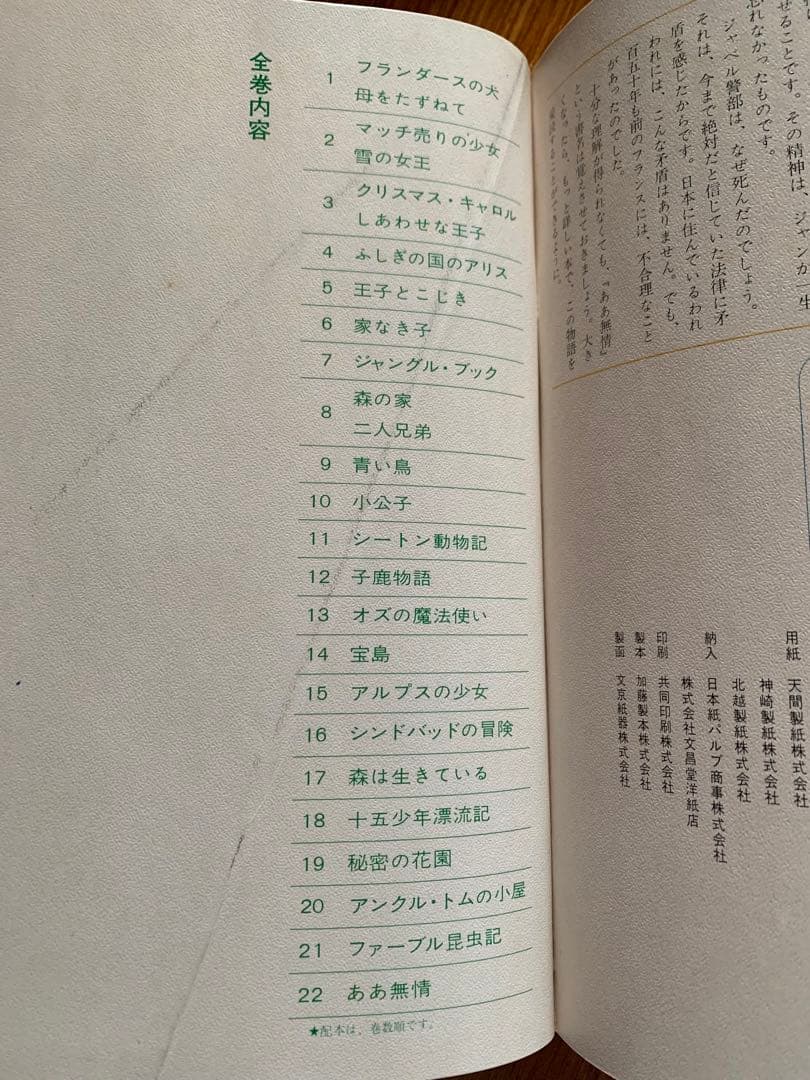 全巻内容
1 フランダースの犬
母をたずねて
2 マッチ売りの少女
雪の女王
3 クリスマス・キャロル
しあわせな王子
4 ふしぎの国のアリス
5 王子とこじき
6 家なき子
7 ジャングル・ブック
8 森の家
二人兄弟
9 青い鳥
10 小公子
11 シートン動物記
12 子鹿物語
13 オズの魔法使い
14 宝島
15 アルプスの少女
16 シンドバッドの冒険
17 森は生きている
18 十五少年漂流記
19 秘密の花園
20 アンクル・トムの小屋
21 ファーブル昆虫記
22 ああ無情
★配本は、巻数順です。
せることです。その精神は、ジャンが、生
忘れなかったものです。
ジャベル警部は、なぜ死んだのでしょう。
それは、今まで絶対だと信じていた法律に矛
盾を感じたからです。日本に住んでいるわれ
われには、こんな矛盾はありません。でも、
百五十年も前のフランスには、不合理なこと
があったのでした。
十分な理解が得られなくても、『ああ無情』
という書名は覚えさせておきましょう。大き
くなったら、もっと詳しい本で、この物語を
することができるように。
用紙 天間製紙株式会社
神崎製紙株式会社
北越製紙株式会社
納入 日本紙パルプ商事株式会社
株式会社文昌堂洋紙店
印刷 共同印刷株式会社
製本 加藤製本株式会社
製函 文京紙器株式会社